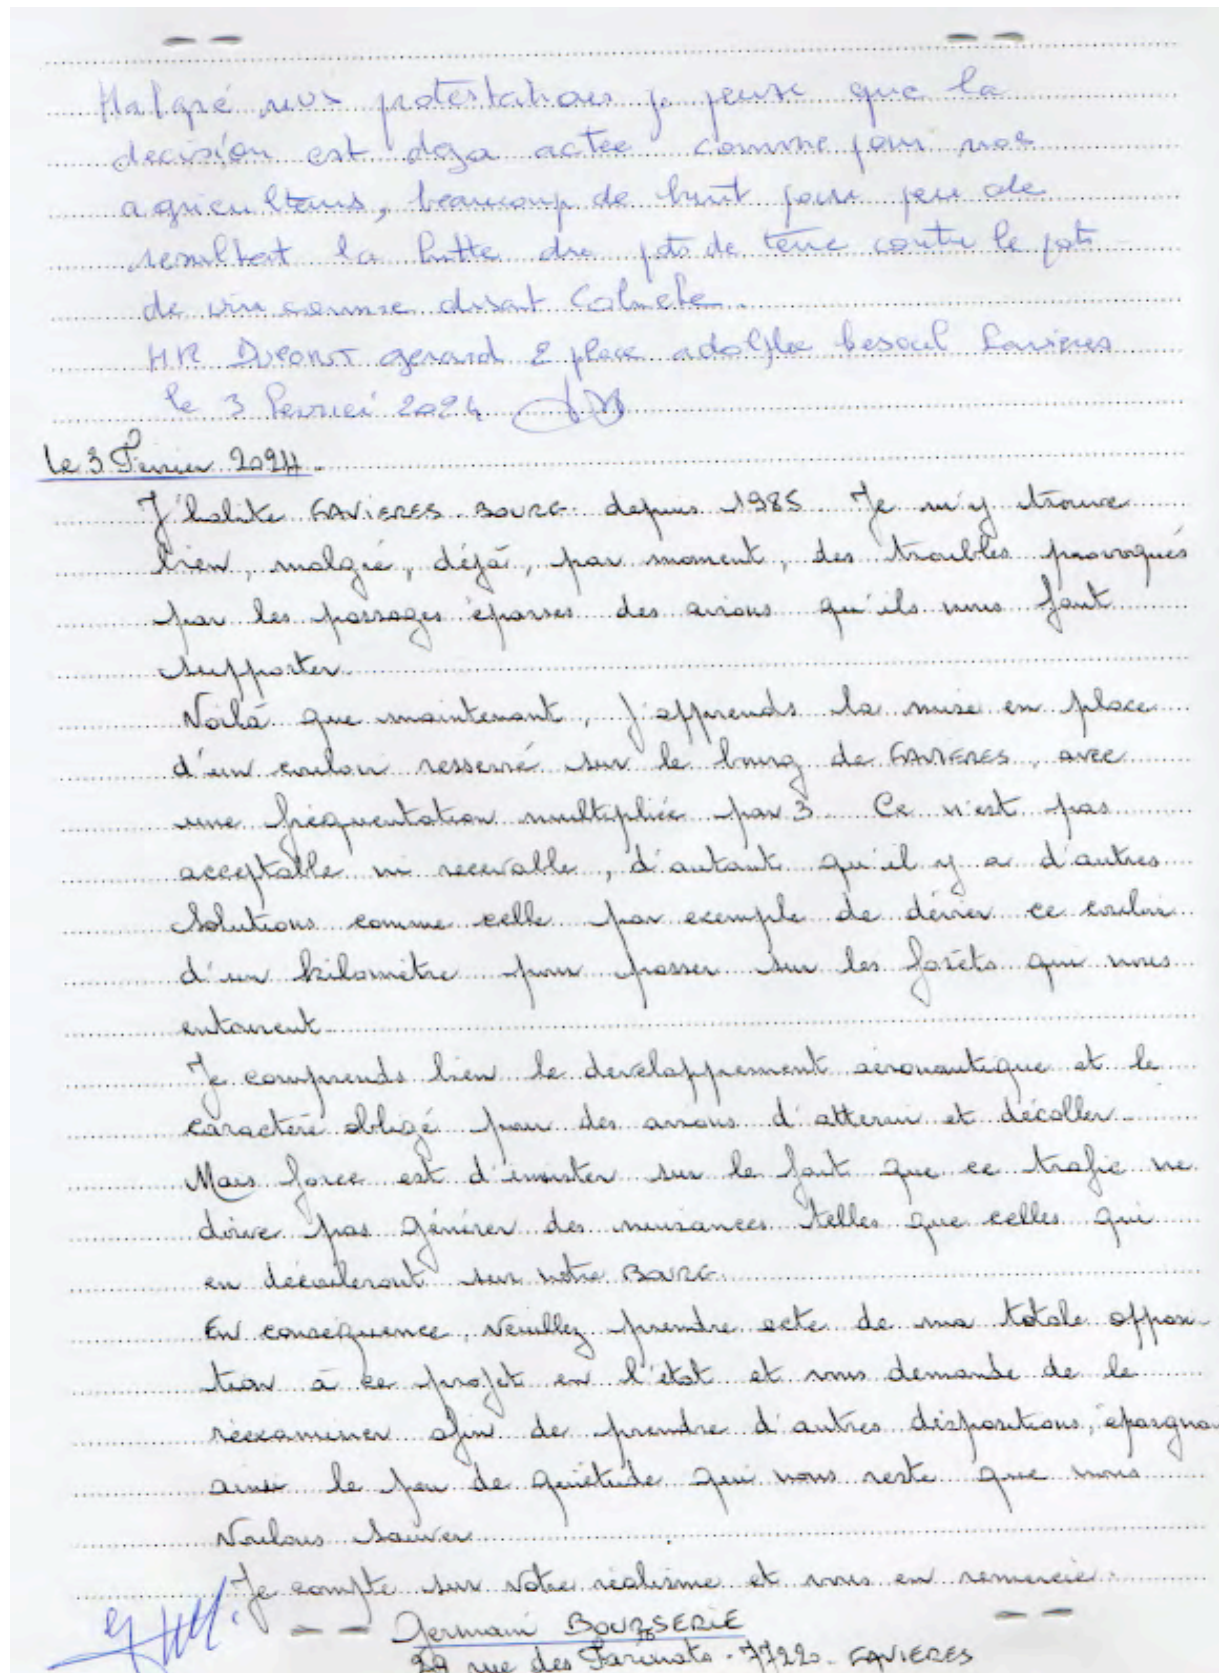 Malgré nos protestations je pense que la
decision est deja actée comme pour nos
agriculteurs, beaucoup de bruit pour peu de
resultat la lutte du pots de terre contre le pots
de vin comme disait Coluche.
MR DUPONT gerard 2 place adolphe besoul Favieres
le 3 fevrier 2024
Le 3 Février 2024.
J'habite FAVIERES BOURG depuis 1985 Je m'y trouve
bien, malgré, déjà, par moment, des troubles provoqués
par les passages éparses des avions qu'ils nous faut
supporter
Voilà que maintenant, j'apprends la mise en place
d'un couloir resserré sur le bourg de FAVIERES, avec
une fréquentation multipliée par 3 Ce n'est pas
acceptable ni recevable, d'autant qu'il y a d'autres
solutions comme celle par exemple de dévier ce couloir
d'un kilomètre pour passer sur les forêts qui nous
entourent
Je comprends bien le developpement aéronautique et le
caractère obligé pour des avions d'atterrir et décoller
Mais force est d'insister sur le fait que ce trafic ne
doive pas générer des nuisances telles que celles qui
en découleront sur notre BOURG
En conséquence, veuillez prendre acte de ma totale opposi-
tion à ce projet en l'état et vous demande de le
réexaminer afin de prendre d'autres dispositions, épargna
ainsi le peu de quiétude qui nous reste que nous
voulons sauver
Je compte sur votre réalisme et vous en remercie.
Germain BOURSERIE
rue des Farinats - 77220 - FAVIERES